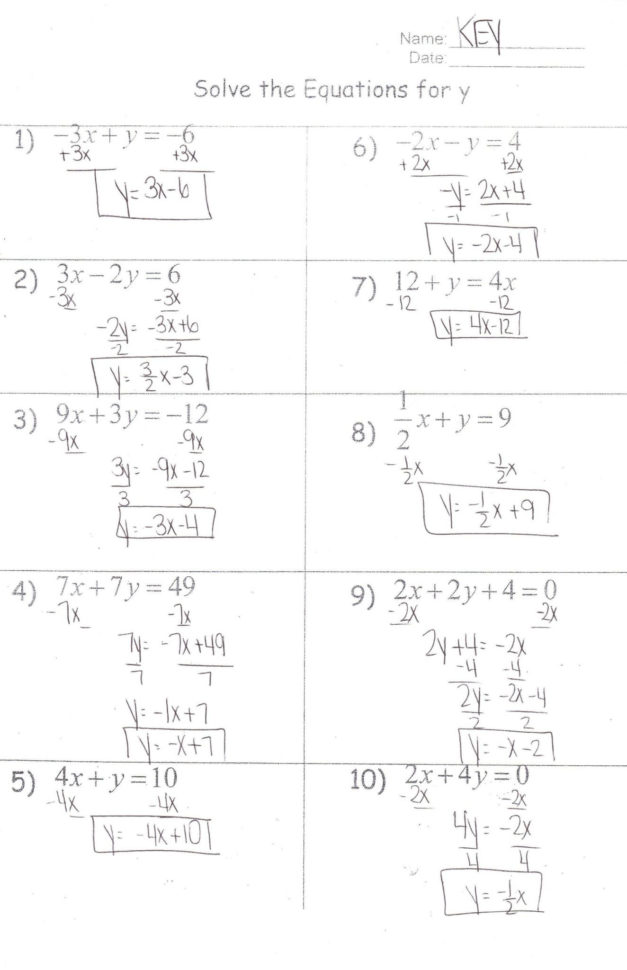 Name: KEY
Date:
Solve the Equations for y
1) −3x + y = −6
+3x +3x
y = 3x-6
2) 3x − 2y = 6
-3x -3x
-2y = -3x+6
2 -2
y = 3/2 x-3
3) 9x + 3y = −12
-9x -9x
3y = -9x-12
3 3
y = -3x-4
4) 7x + 7y = 49
-7x -7x
7y = -7x+49
7 7
y = -1x+7
y = -x+7
5) 4x + y = 10
-4x -4x
y = -4x+10
6) −2x − y = 4
+2x +2x
-y = 2x+4
-1 -1
y = -2x-4
7) 12 + y = 4x
-12 -12
y = 4x-12
8) 1/2 x + y = 9
-1/2 x -1/2 x
y = -1/2 x +9
9) 2x + 2y + 4 = 0
-2x -2x
2y+4 = -2x
-4 -4
2y = -2x-4
2 2
y = -x-2
10) 2x + 4y = 0
-2x -2x
4y = -2x
4 4
y = -1/2 x